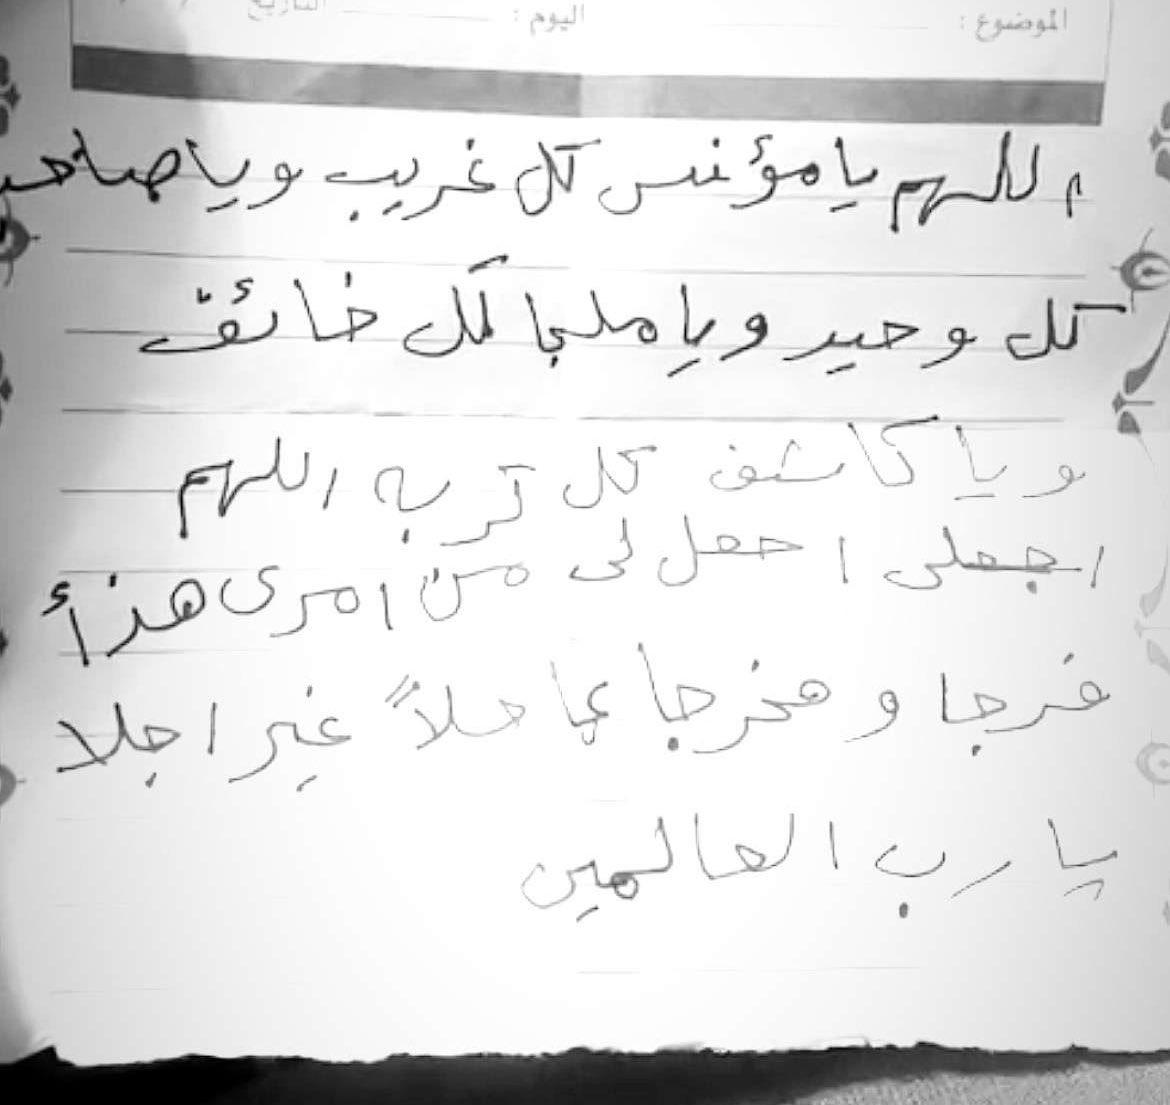 الموضوع : اليوم : التاريخ
اللهم يا مؤنس كل غريب ويا صاحب
كل وحيد ويا ملجا لكل خائف
و يا كاشف كل كربه اللهم
اجعلى احعل لى من امرى هذأ
فرجا و مخرجا عاجلاً غير اجلا
يا رب العالمين